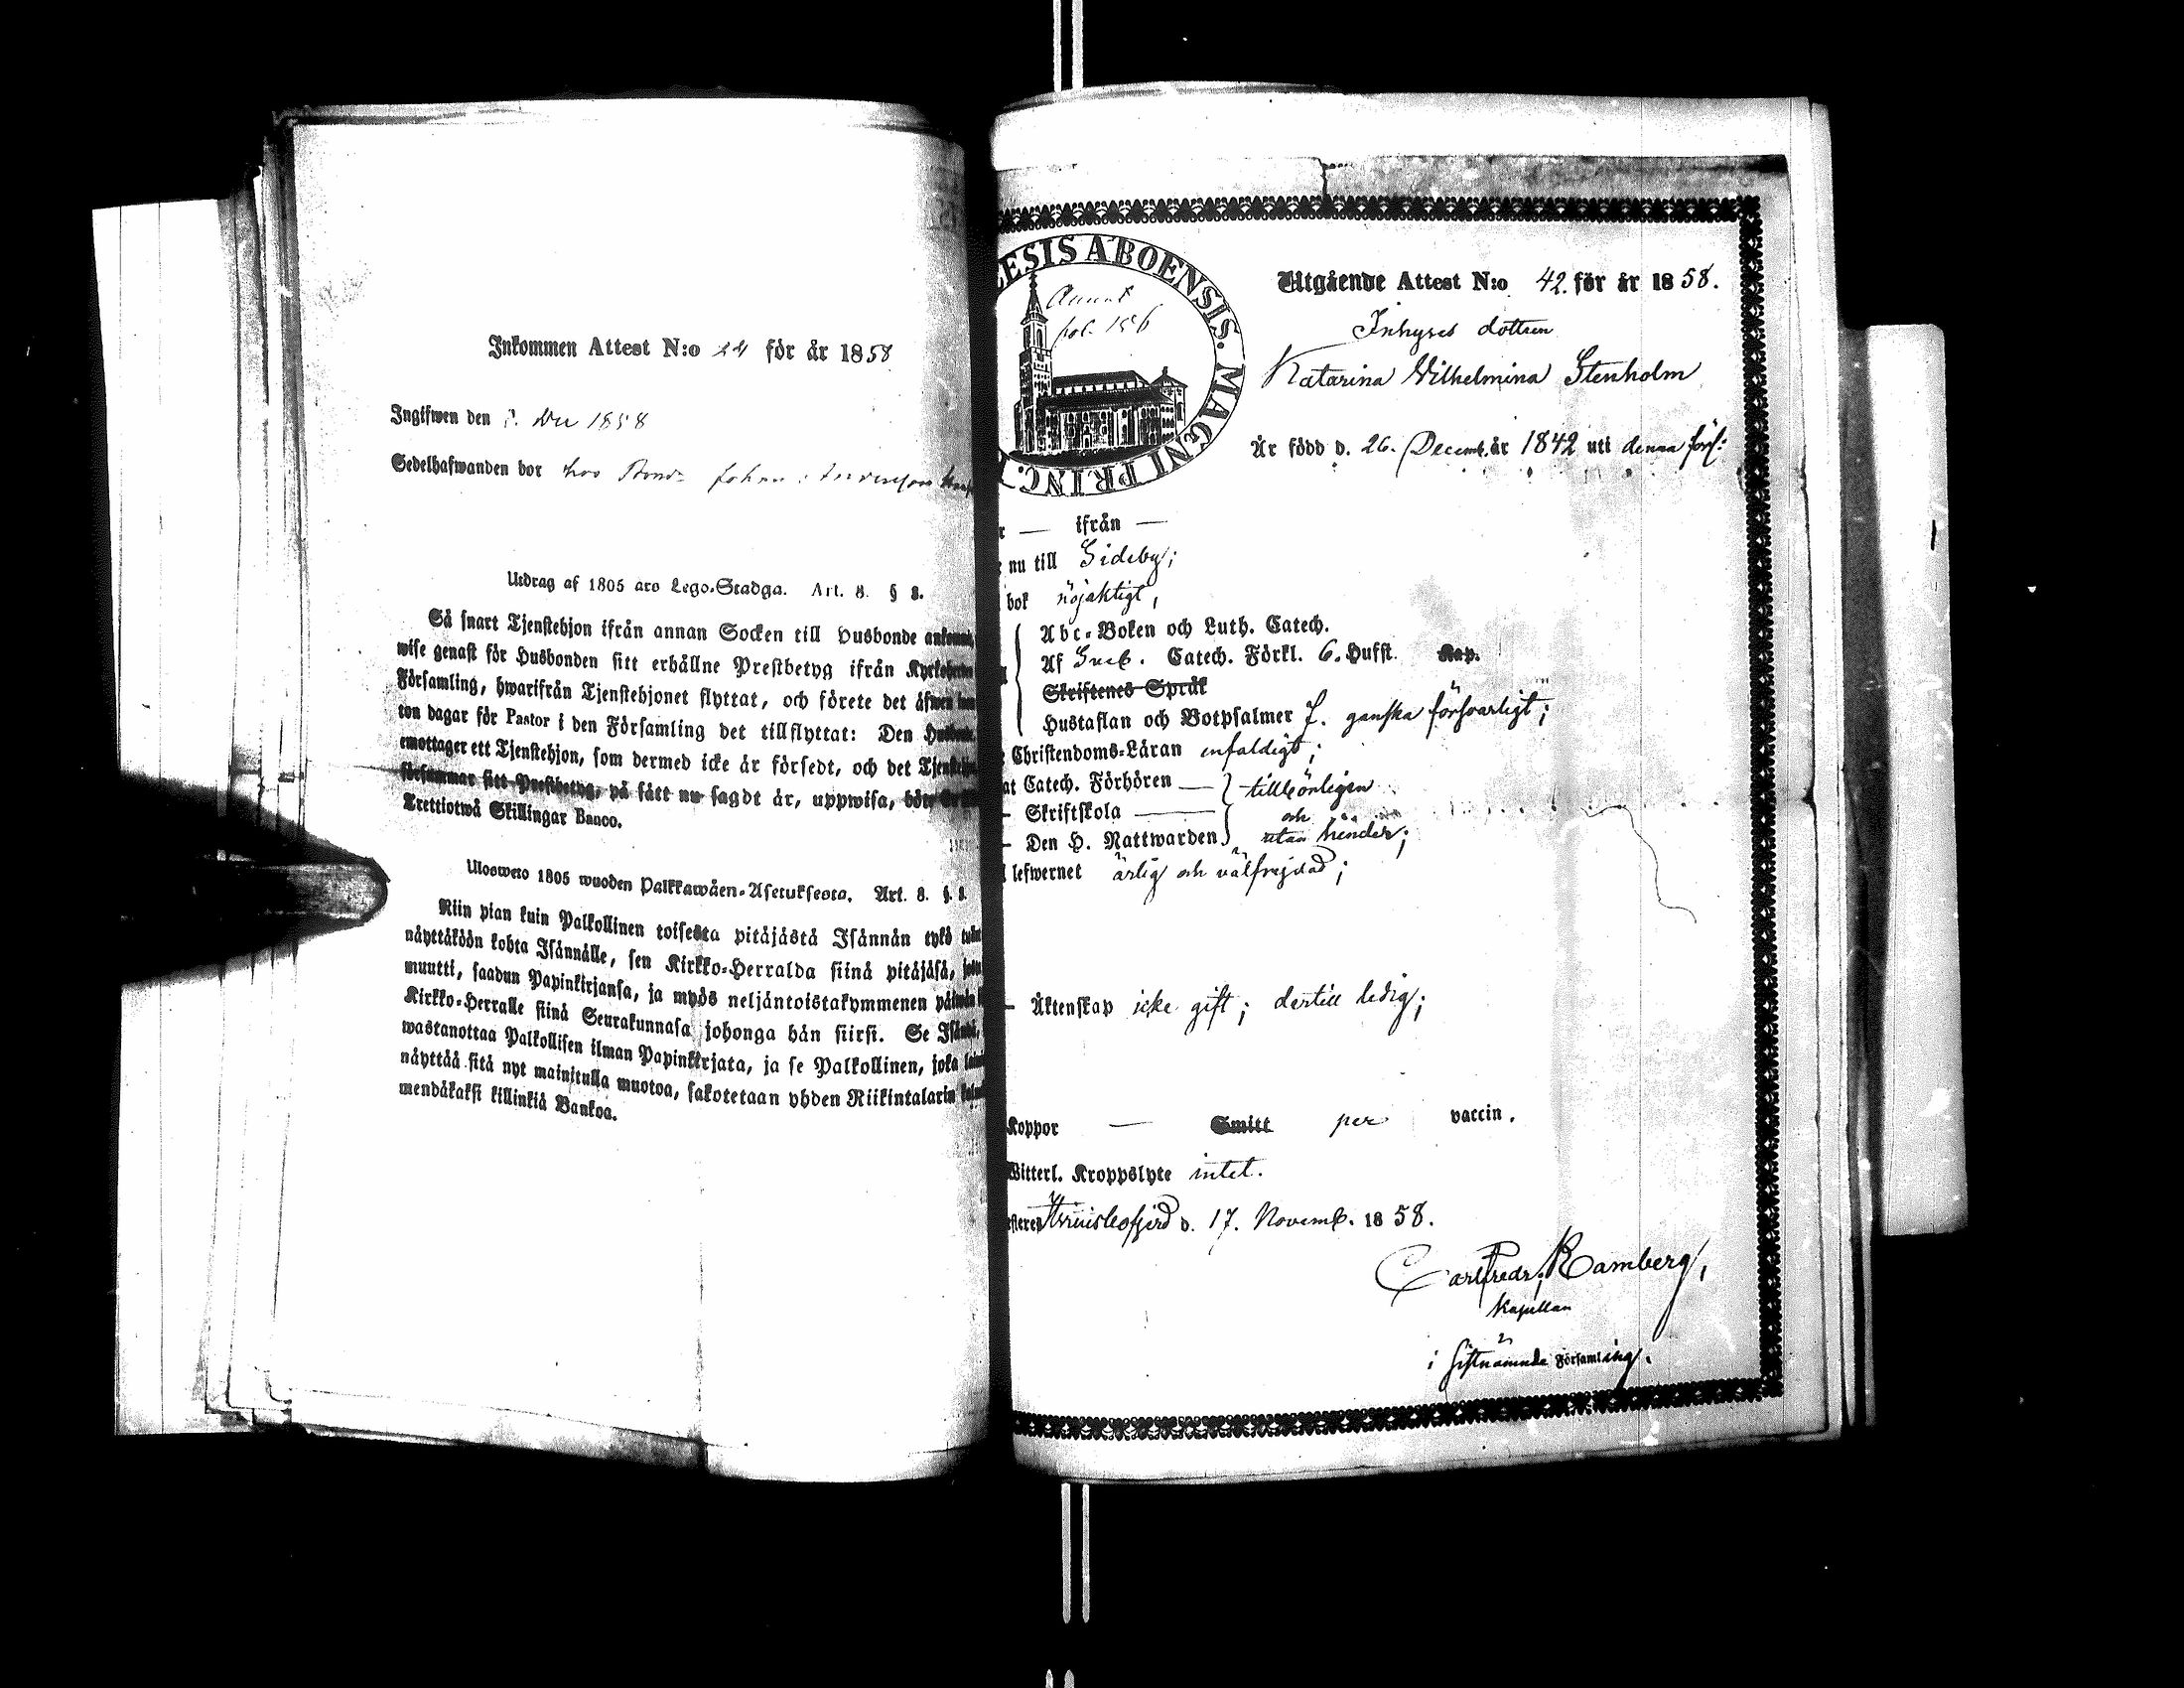 Inkommen Attest N:o 24 för år 1858
Ingifwen den Dec 1858
Sedelhafwanden bor hos Bond. Johan
Utdrag af 1805 års Lego-Stadga. Art. 8. § 8.
Så snart Tjenstehjon ifrån annan Socken till Husbonde
wise genast för Husbonden sitt erhållne Prestbetyg ifrån
Församling, hwarifrån Tjenstehjonet flyttat, och förete det
ton dagar för Pastor i den Församling det tillflyttat: Den
emottager ett Tjenstehjon, som dermed icke är försedt, och det
försummar sitt Prestbetyg, på sätt nu sagdt är, uppwisa,
Trettiotwå Skillingar Banco.
Ulosweto 1805 wuoden Palkkawäen-Asetuksesta. Art. 8. §. 8.
Niin pian kuin Palkollinen toisesta pitäjästä Isännän tykö
näyttäköön kohta Isännälle, sen Kirkko-Herralda siinä pitäjäsä,
muutti, saadun Papinkirjansa, ja myös neljäntoistakymmenen
Kirkko-Herralle siinä Seurakunnasa johonga hän siirsi. Se
wastanottaa Palkollisen ilman Papinkirjata, ja se Palkollinen, joka
näyttää sitä nyt mainitulla muotoa, sakotetaan yhden Riikintalarin
mendäkaksi killinkiä Bankoa.
ESIS ABOENSIS. MAGNI PRINC.
Annot
fol. 156
Utgående Attest N:o 42. för år 1858.
Inhyses dottren
Katarina Wilhelmina Stenholm
Är född d. 26. Decemb. år 1842 uti denna förs:
— ifrån —
nu till Sideby;
bok nöjaktigt,
Abc-Boken och Luth. Catech.
Af Sveb. Catech. Förkl. 6. Hufst. Kap.
Skriftenes Språk
Hustaflan och Botpsalmer 7. ganska försvarligt;
Christendoms-Läran enfaldigt;
at Catech. Förhören — tillbörligen
— Skriftskola — och
— Den H. Nattwarden utan hinder;
lefwernet ärlig och välfrejdad;
— Äktenskap icke gift; dertill ledig;
Koppor — Smitt per vaccin.
Witterl. Kroppslyte intet.
d. 17. Novemb. 1858.
Carl Fredr. Ramberg,
Kapellan
i sistnämnde Församling.